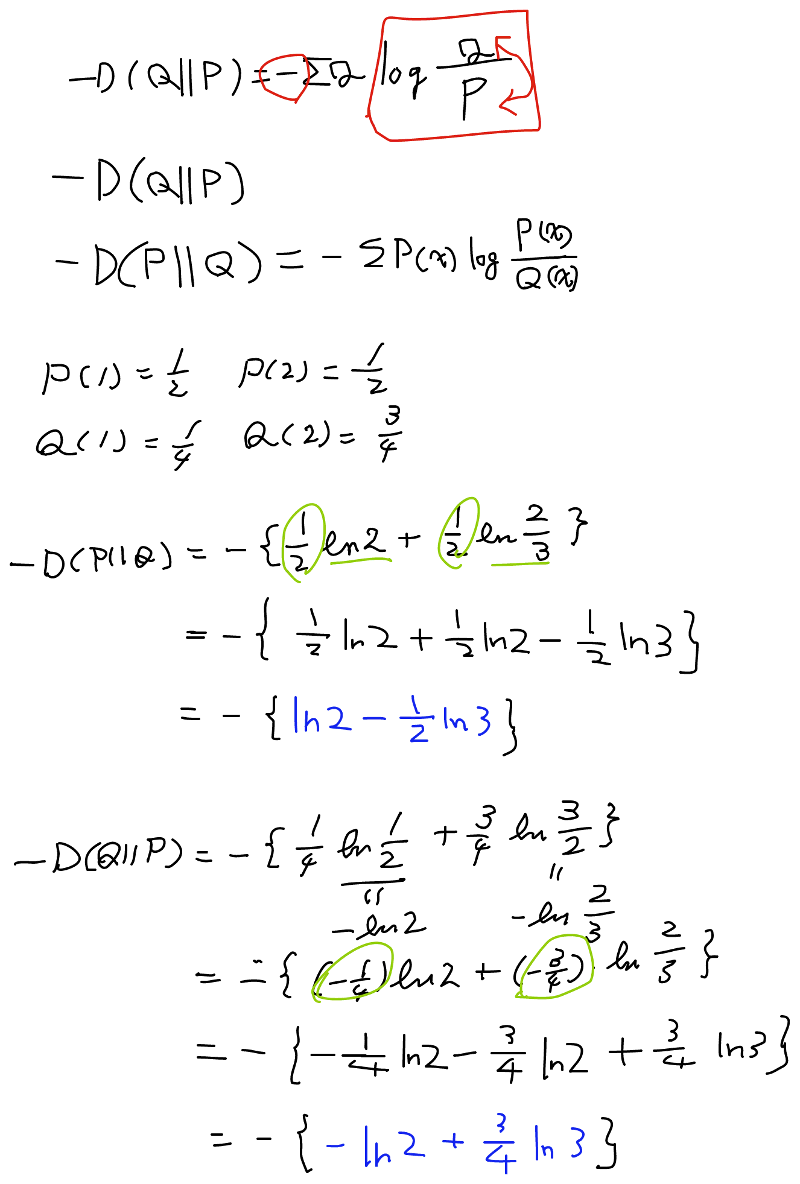 -D(Q||P) = -ΣQ log Q/P
-D(Q||P)
-D(P||Q) = - ΣP(x) log P(x)/Q(x)
P(1) = 1/2 P(2) = 1/2
Q(1) = 1/4 Q(2) = 3/4
-D(P||Q) = - {1/2 ln2 + 1/2 ln 2/3 }
= - { 1/2 ln2 + 1/2 ln2 - 1/2 ln3}
= - {ln2 - 1/2 ln3}
-D(Q||P) = - {1/4 ln 1/2 + 3/4 ln 3/2}
= =
-ln2 -ln 2/3
= - { (-1/4) ln2 + (-3/4) · ln 2/3 }
= - {-1/4 ln2 - 3/4 ln2 + 3/4 ln3}
= - {-ln2 + 3/4 ln3}